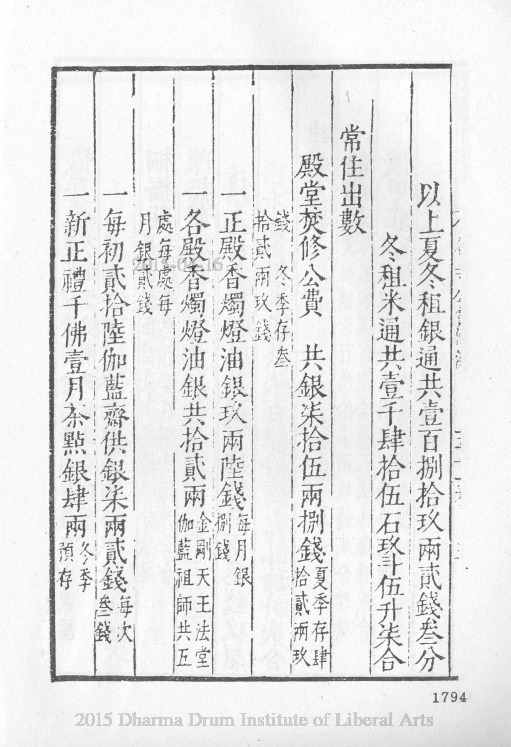 以上夏冬租銀通共壹百捌拾玖兩貳錢叁分
冬租米通共壹千肆拾伍石玖斗伍升柒合
常住出數
殿堂焚修公費 共銀柒拾伍兩捌錢夏季存肆拾貳兩玖
錢 冬季存叁拾貳兩玖錢
一正殿香燭燈油銀玖兩陸錢每月銀捌錢
一各殿香燭燈油銀共拾貳兩金剛天王法堂伽藍祖師共五
處每處每月銀貳錢
一每初貳拾陸伽藍齋供銀柒兩貳錢每次叁錢
一新正禮千佛壹月茶點銀肆兩冬季預存
1794
2015 Dharma Drum Institute of Liberal Arts